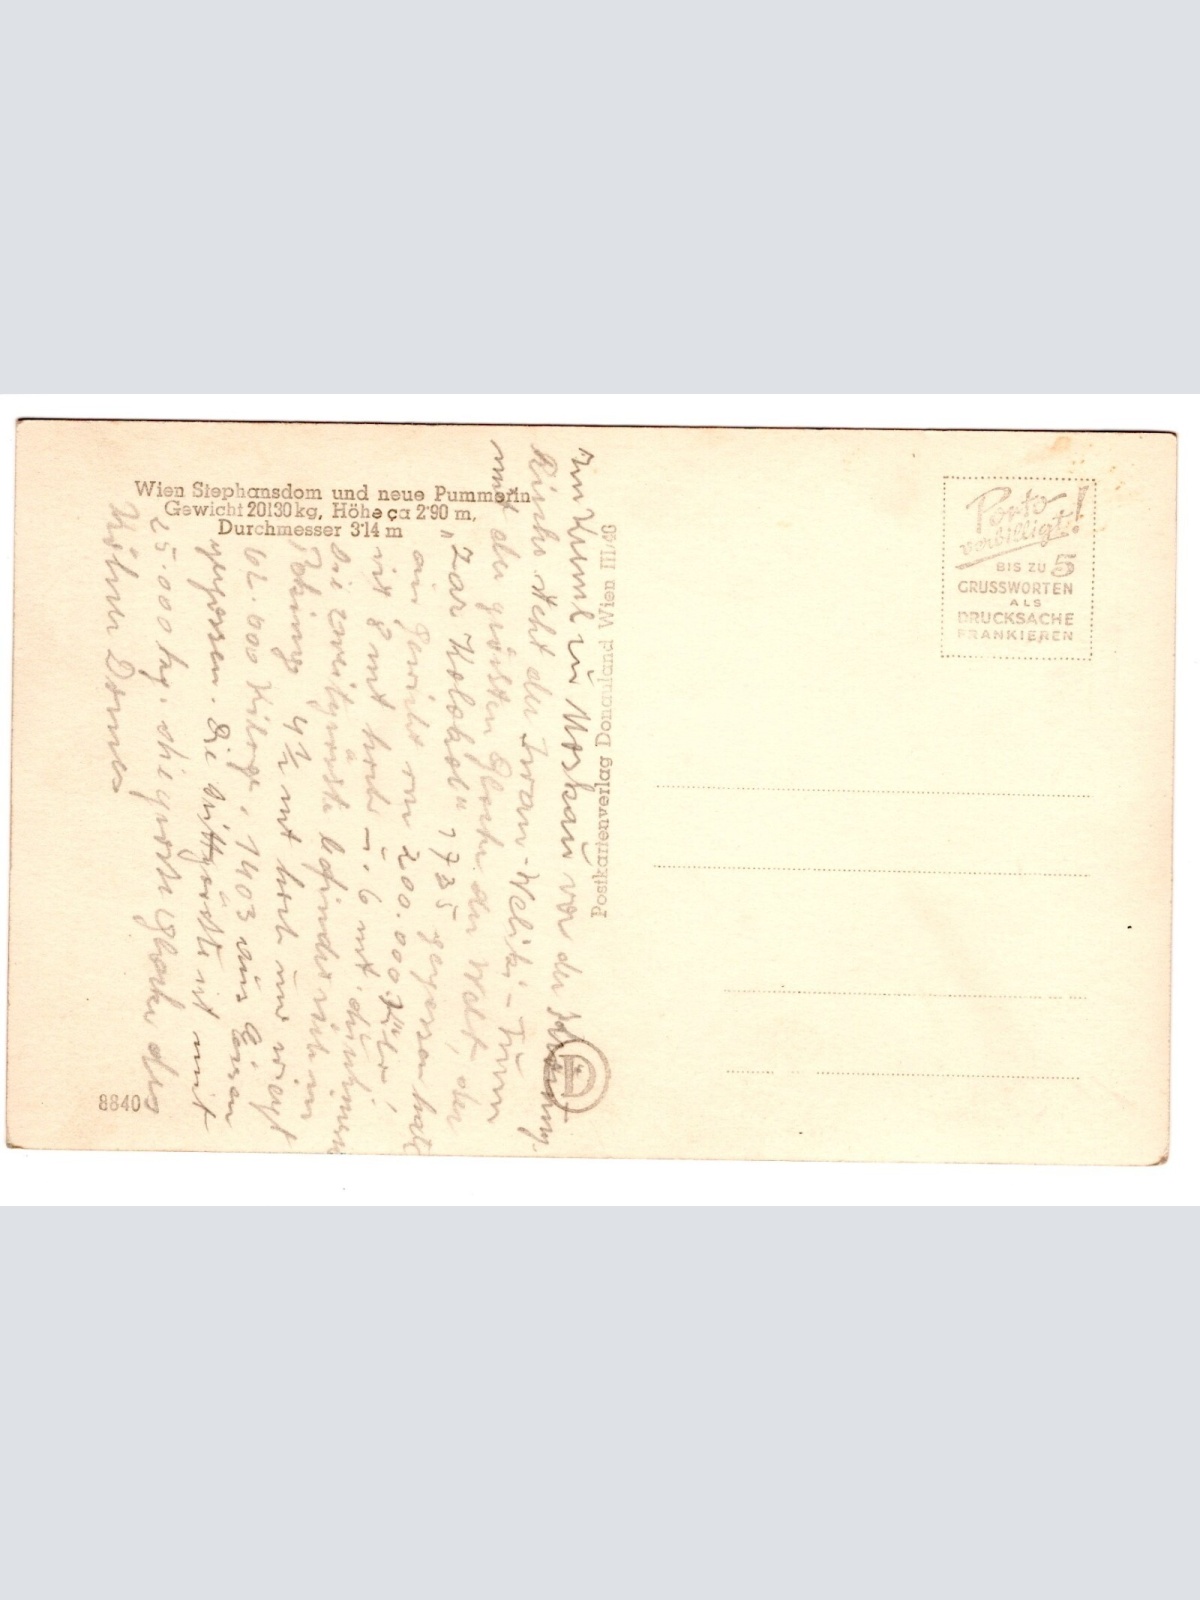 Wien Stephansdom und neue Pummerin
Gewicht 20130 kg, Höhe ca 2'90 m,
Durchmesser 3'14 m
Im Kreml zu Moskau vor der
Kirche steht der Iwan-Weliki-Turm
mit der grössten Glocke der Welt, der
"Zar Kolokol" 1735 gegossen hat
ein Gewicht von 200.000 Kilo,
ist 8 mt hoch u. 6 mt.
Die zweitgrösste befindet sich in
Peking 4½ mt hoch und wiegt
62.000 Kilogr. 1403 aus Eisen
gegossen. Die drittgrösste ist mit
25.000 kg. die grosse Glocke des
Kölner Domes
Postkartenverlag Donauland Wien III/46
D
8840
Porto
verbilligt!
BIS ZU 5
GRUSSWORTEN
ALS
DRUCKSACHE
FRANKIEREN